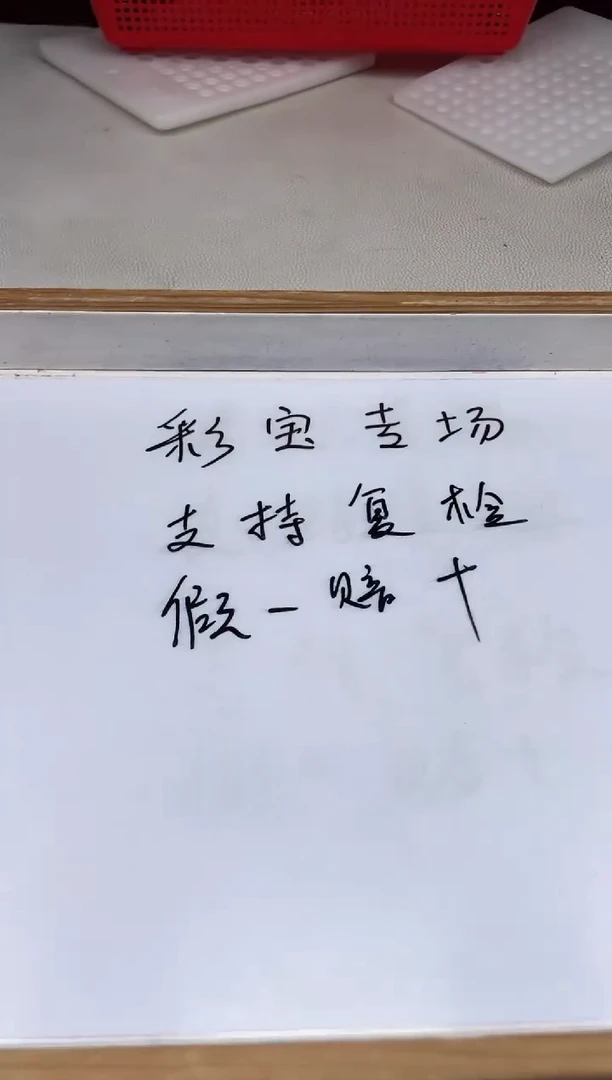 彩宝专场
支持复检
假一赔十